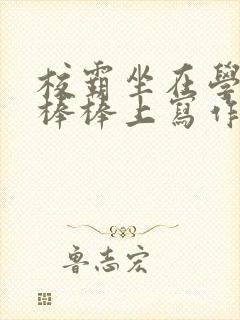 校霸坐在學
棒棒上寫作
魯志宏